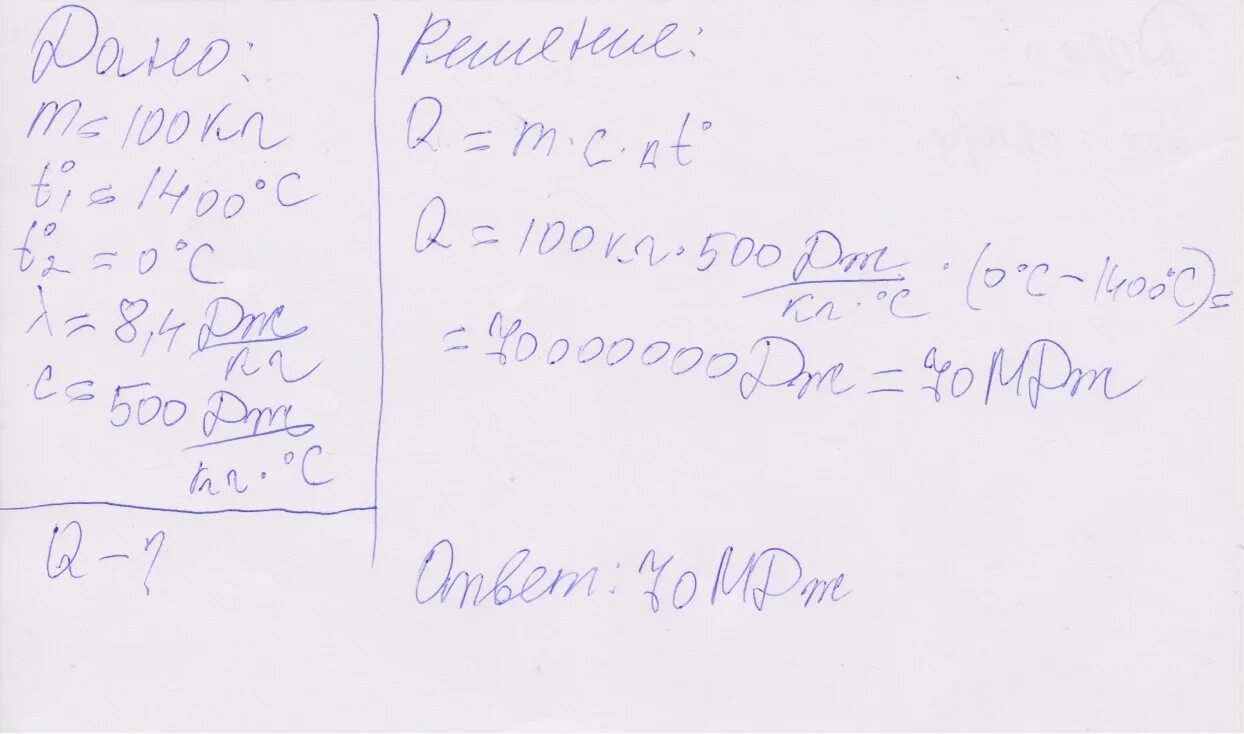 Дано:
m = 100 кг
t°₁ = 1400°С
t°₂ = 0°С
λ = 8,4 Дж/кг
с = 500 Дж/кг·°С
Q – ?
Решение:
Q = m·с·Δt°
Q = 100 кг·500 Дж/кг·°С · (0°С – 1400°С) =
= 70000000 Дж = 70 МДж
Ответ: 70 МДж